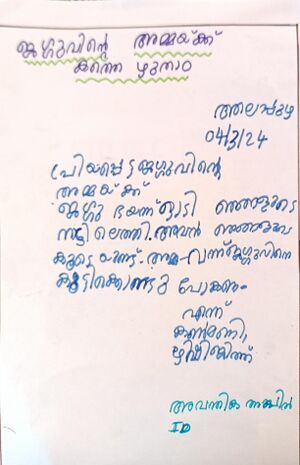 ജഗ്ഗുവിന്റെ അമ്മയ്ക്ക്
കത്തെഴുതാം
04/3/24
പ്രിയപ്പെട്ട ജഗ്ഗുവിന്റെ
അമ്മയ്ക്ക്
ജഗ്ഗു ഭയന്ന് ഓടി ഞങ്ങളുടെ
അവൻ ഞങ്ങളുടെ
കൂടെയുണ്ട്. അമ്മ വന്ന് ജഗ്ഗുവിനെ
കൂട്ടിക്കൊണ്ടു പോകണം
എന്ന്
കൺമണി,
അവന്തിക
ID